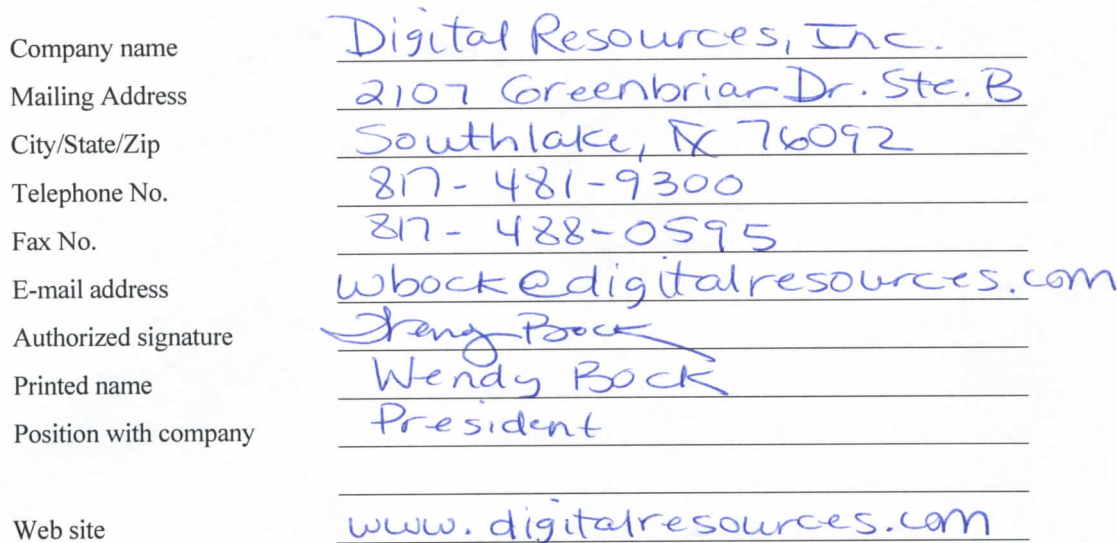 Company name Digital Resources, Inc.
Mailing Address 2107 Greenbriar Dr. Ste. B
City/State/Zip Southlake, TX 76092
Telephone No. 817-481-9300
Fax No. 817-488-0595
E-mail address wbock@digitalresources.com
Authorized signature Bock
Printed name Wendy Bock
Position with company President
Web site www.digitalresources.com